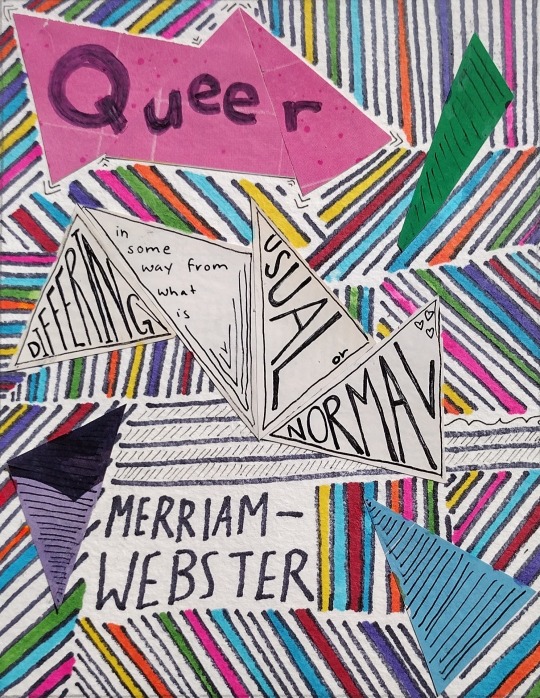 Queer
DIFFERING
in
some
way from
what
is
USUAL
or
NORMAL
MERRIAM-
WEBSTER